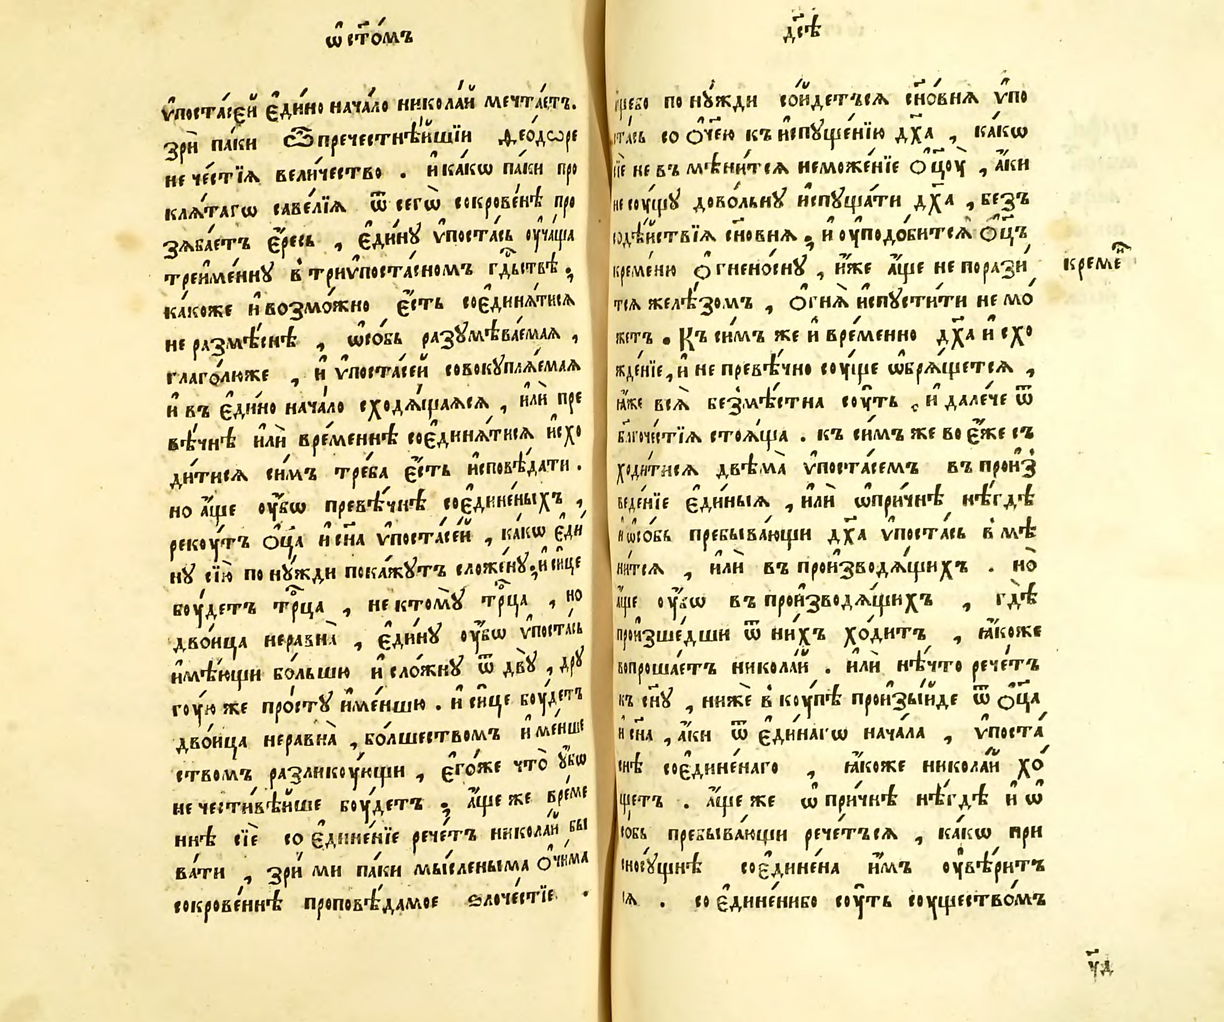 ѡ҆ ст҃о́мъ
ѵ҆поста́сей є҆ди́но нача́ло никола́й мечта́етъ.
зрѝ па́ки ѽ пречестнѣ́йшїи ѳео́дѡре
нече́стїѧ вели́чество . и҆ ка́кѡ па́ки про
клѧ́тагѡ саве́лїѧ ѿ сегѡ̀ сокрове́нѣ про
зѧба́етъ є҆́ресь , є҆ди́нꙋ ѵ҆поста́сь оу҆ча́ща
треиме́ннꙋ в триѵ҆поста́сномъ гд҃ьствѣ̀,
ка́коже и҆ возмо́жно є҆́сть соєдинѧ́тисѧ
не размѣ́снѣ , ѡ҆со́бь разꙋмѣва́емаѧ ,
глаго́люже , и҆ ѵ҆поста́сей совокꙋплѧ́емаѧ
и҆ въ є҆ди́но нача́ло сходѧ́щаѧсѧ , и҆лѝ пре
вѣ́чнѣ и҆лѝ вре́меннѣ соєдинѧ́тисѧ и҆схо
ди́тисѧ си́мъ тре́ба є҆́сть и҆сповѣ́дати .
но а҆́ще оу҆́бѡ превѣ́чнѣ соєдине́ныхъ ,
рекꙋ́тъ ѻ҆ц҃а̀ и҆ сн҃а ѵ҆поста́сей , ка́кѡ є҆ди
нꙋ сїю̀ по нꙋ́жди пока́жꙋтъ сложе́нꙋ, и҆ си́це
боу́детъ трⷪ҇ца , не ктомꙋ̀ трⷪ҇ца , но
дво́ица неравна̀ , є҆ди́нꙋ оу҆́бѡ ѵ҆поста́сь
и҆мѣ́ющи бо́льшю и҆ сло́жнꙋ ѿ двꙋ̀ , дрꙋ
гоу́ю же про́стꙋ и҆ ме́ншю . и҆ си́це боу́детъ
дво́ица неравна̀ , бо́лшествомъ и҆ ме́нше
ствомъ разликоу́ющи , є҆го́же что̀ оу҆́бѡ
нечести́вѣйше боу́детъ , а҆́ще же вре́ме
ннѣ сїѐ соєдине́нїе рече́тъ никола́й бы
ва́ти , зри́ ми па́ки мы́сленыма ѻ҆чи́ма
сокрове́ннѣ проповѣ́дамое ѕлоче́стїе .
дс҃ѣ
по нꙋ́жди со́йдетъсѧ сн҃о́внѧ ѵ҆по
ста́сь со ѻ҆́чею къ и҆спꙋще́нїю дх҃а , ка́кѡ
не въмѣни́тсѧ неможе́нїе ѻ҆ц҃оу̀ , а҆́ки
не сꙋ́щꙋ дово́льнꙋ и҆спꙋща́ти дх҃а , безъ
содѣ́йствїѧ сн҃о́внѧ, и҆ оу҆подо́битсѧ ѻ҆ц҃ъ
кре́меню ѻ҆гнено́снꙋ , и҆́же а҆́ще не порази́
тсѧ желѣ́зомъ , ѻ҆гнѧ̀ и҆спꙋсти́ти не мо́
жетъ . Къ си́мъ же и҆ вре́менно дх҃а и҆схо
жде́нїе, и҆ не превѣ́чно соу́ще ѡ҆брѧ́щетсѧ ,
ꙗ҆́же всѧ̀ безмѣ́стна соу́ть , и҆ дале́че ѿ
благоче́стїѧ стоѧ́ща . къ си́мъ же во є҆́же съ
ходи́тисѧ двѣма̀ ѵ҆поста́семъ въ произ
веде́нїе є҆ди́ныѧ , и҆лѝ ѡ҆при́чнѣ нѣ́гдѣ
и҆ ѡ҆со́бь пребыва́ющи дх҃а ѵ҆поста́сь в мѣ
ни́тсѧ , и҆лѝ въ производѧ́щихъ . но̀
а҆́ще оу҆́бѡ въ производѧ́щихъ , гдѣ̀
произше́дши ѿ ни́хъ хо́дитъ , ꙗ҆́коже
вопроша́етъ никола́й . и҆лѝ нѣ́что рече́тъ
къ сн҃ꙋ , нижѐ в коу́пѣ произы́йде ѿ ѻ҆ц҃а̀
и҆ сн҃а , а҆́ки ѿ є҆ди́нагѡ нача́ла , ѵ҆поста́
снѣ соєдине́наго , ꙗ҆́коже никола́й хо́
щетъ . а҆́ще же ѡ҆ при́чнѣ нѣ́гдѣ и҆ ѡ҆
со́бь пребыва́ющи рече́тъсѧ , ка́кѡ при
сносꙋ́щнѣ соєдине́на и҆́мъ оу҆вѣ́ритъ
сѧ . соєдине́нибо соу́ть соущество́мъ
креме́ⁿ
ѵ҃д